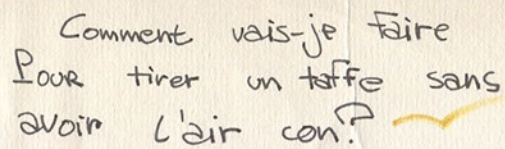 Comment vais-je faire
Pour tirer un taffe sans
avoir l'air con?